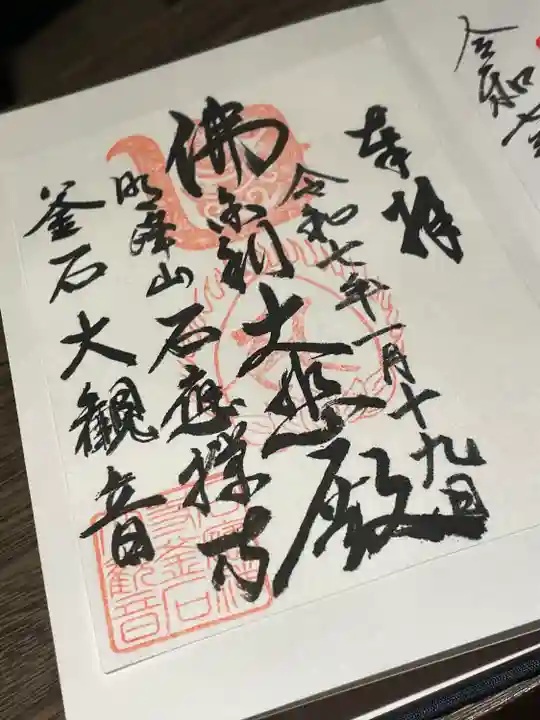 令和七年
奉拝
令和七年一月十九日
佛舎利大悲殿
明峰山石應禅寺
釜石大観音